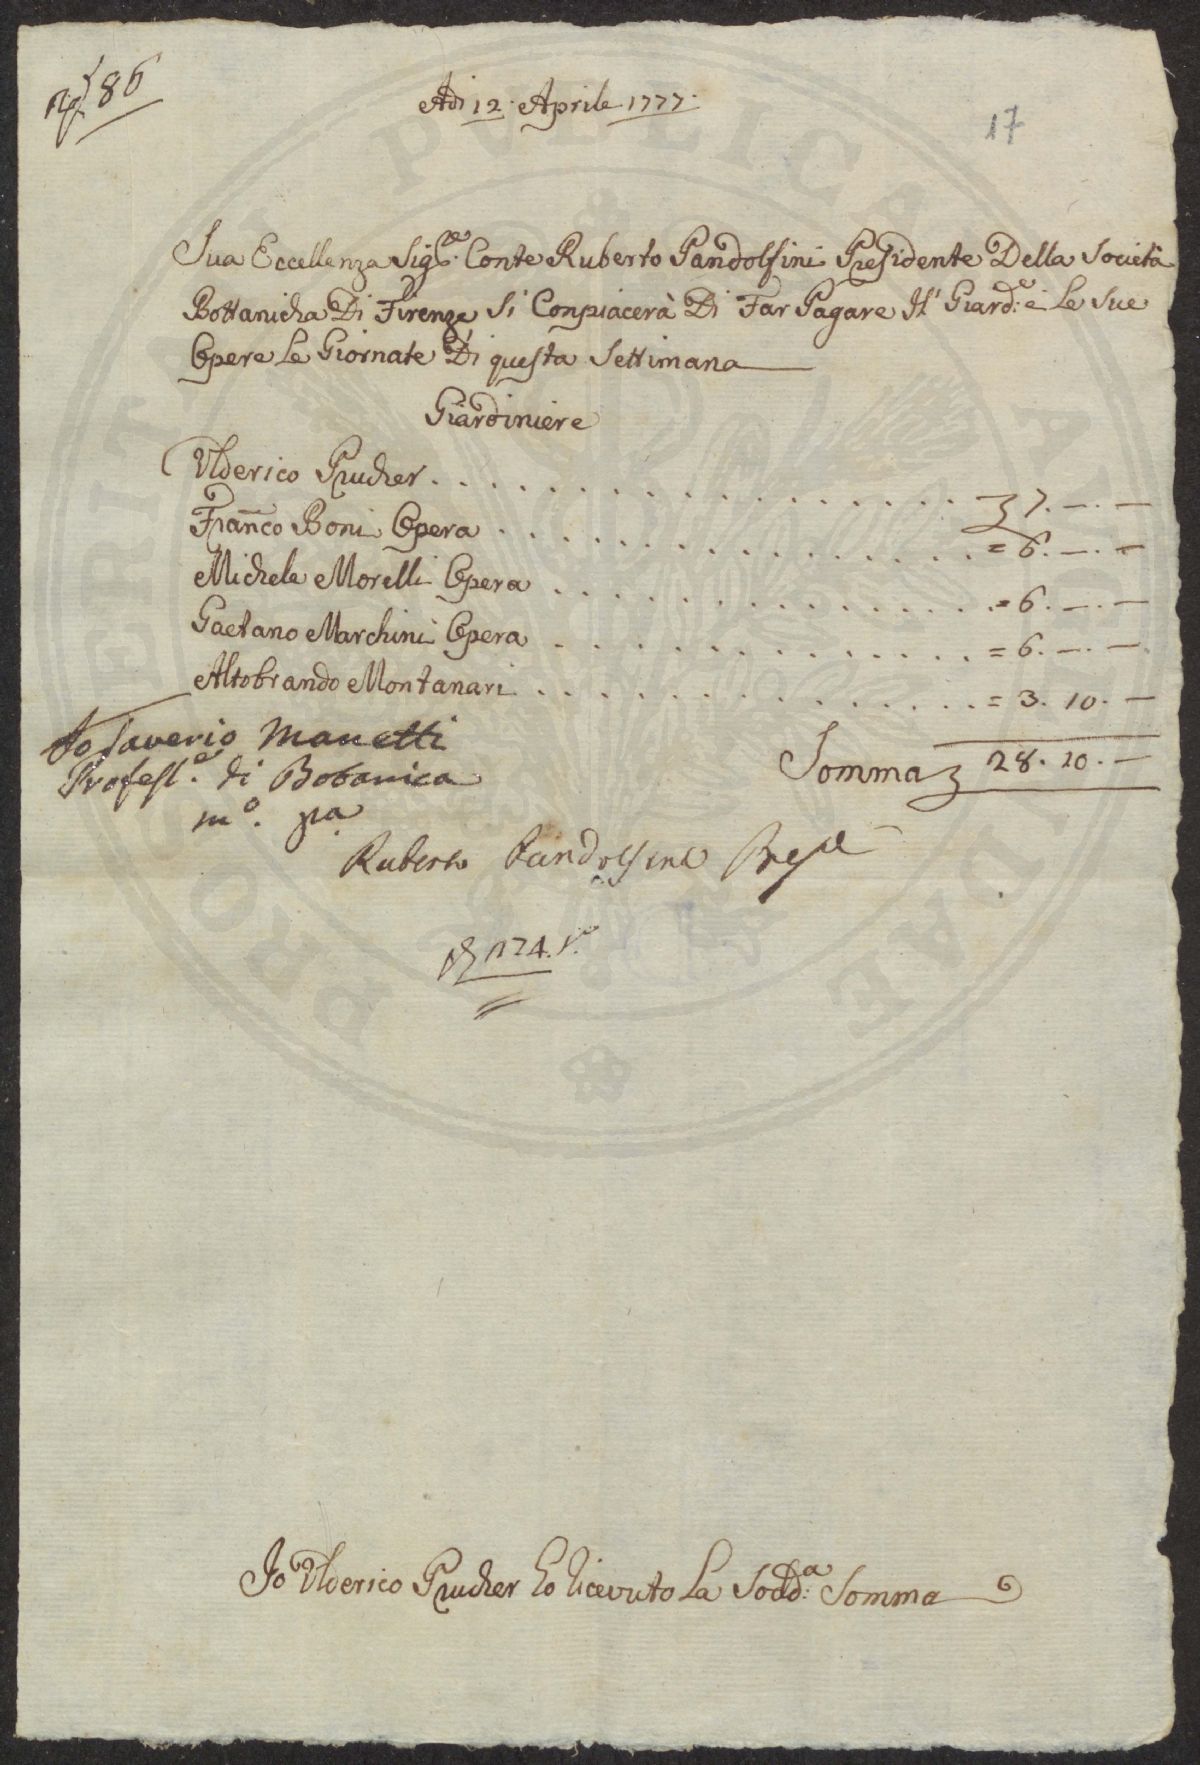 86
Adi 12. Aprile 1777.
17
Sua Eccellenza Sig.re Conte Ruberto Pandolfini Presidente Della Società
Bottanicha Di Firenze Si Conpiacerà Di Far Pagare Il Giard.e e Le Sue
Opere Le Giornate Di questa Settimana
Giardiniere
Ulderico Prucher . . . . . . . . . . . . . . . . 7. —. —
Fran.co Boni Opera . . . . . . . . . . . . . . . = 6. —. —
Michele Morelli Opera . . . . . . . . . . . . . = 6. —. —
Gaetano Marchini Opera . . . . . . . . . . . . = 6. —. —
Altobrando Montanari . . . . . . . . . . . . . = 3. 10. —
Somma 28. 10. —
Io Saverio Manetti
Profess.e di Botanica
m.o pa
Ruberto Pandolfini Pres.e
174.
Io Ulderico Prucher ho Ricevuto La Sodd.a Somma
PVBLICAE
FELICITATI